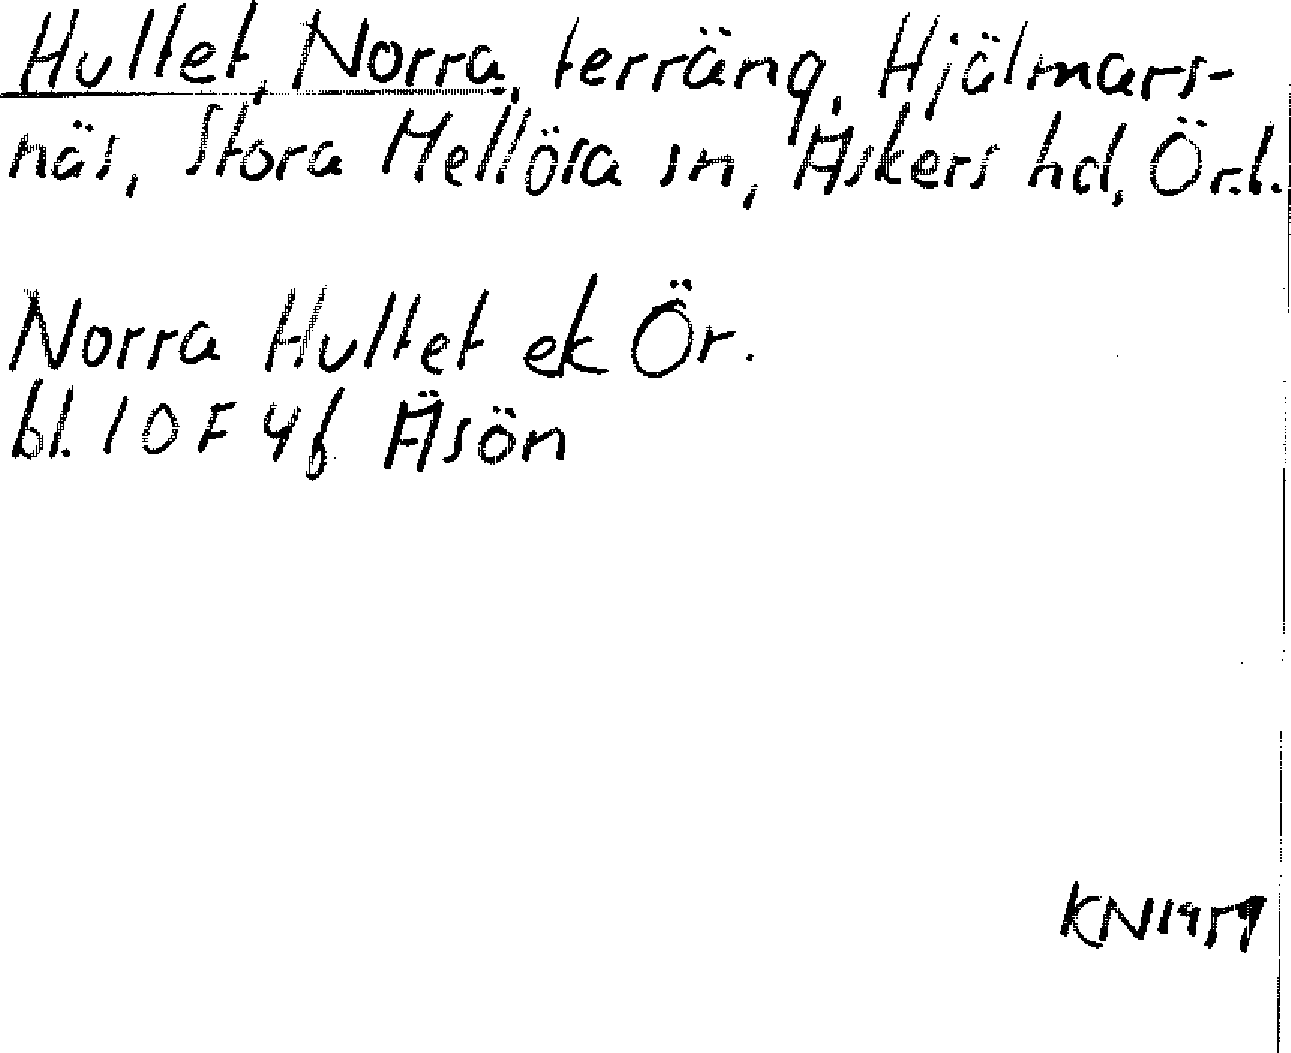 Hultet, Norra, terräng, Hjälmars-
näs, Stora Mellösa sn, Askers hd, Ör.l.
Norra Hultet ek Ör.
bl. 10F 4f Äsön
KN1959